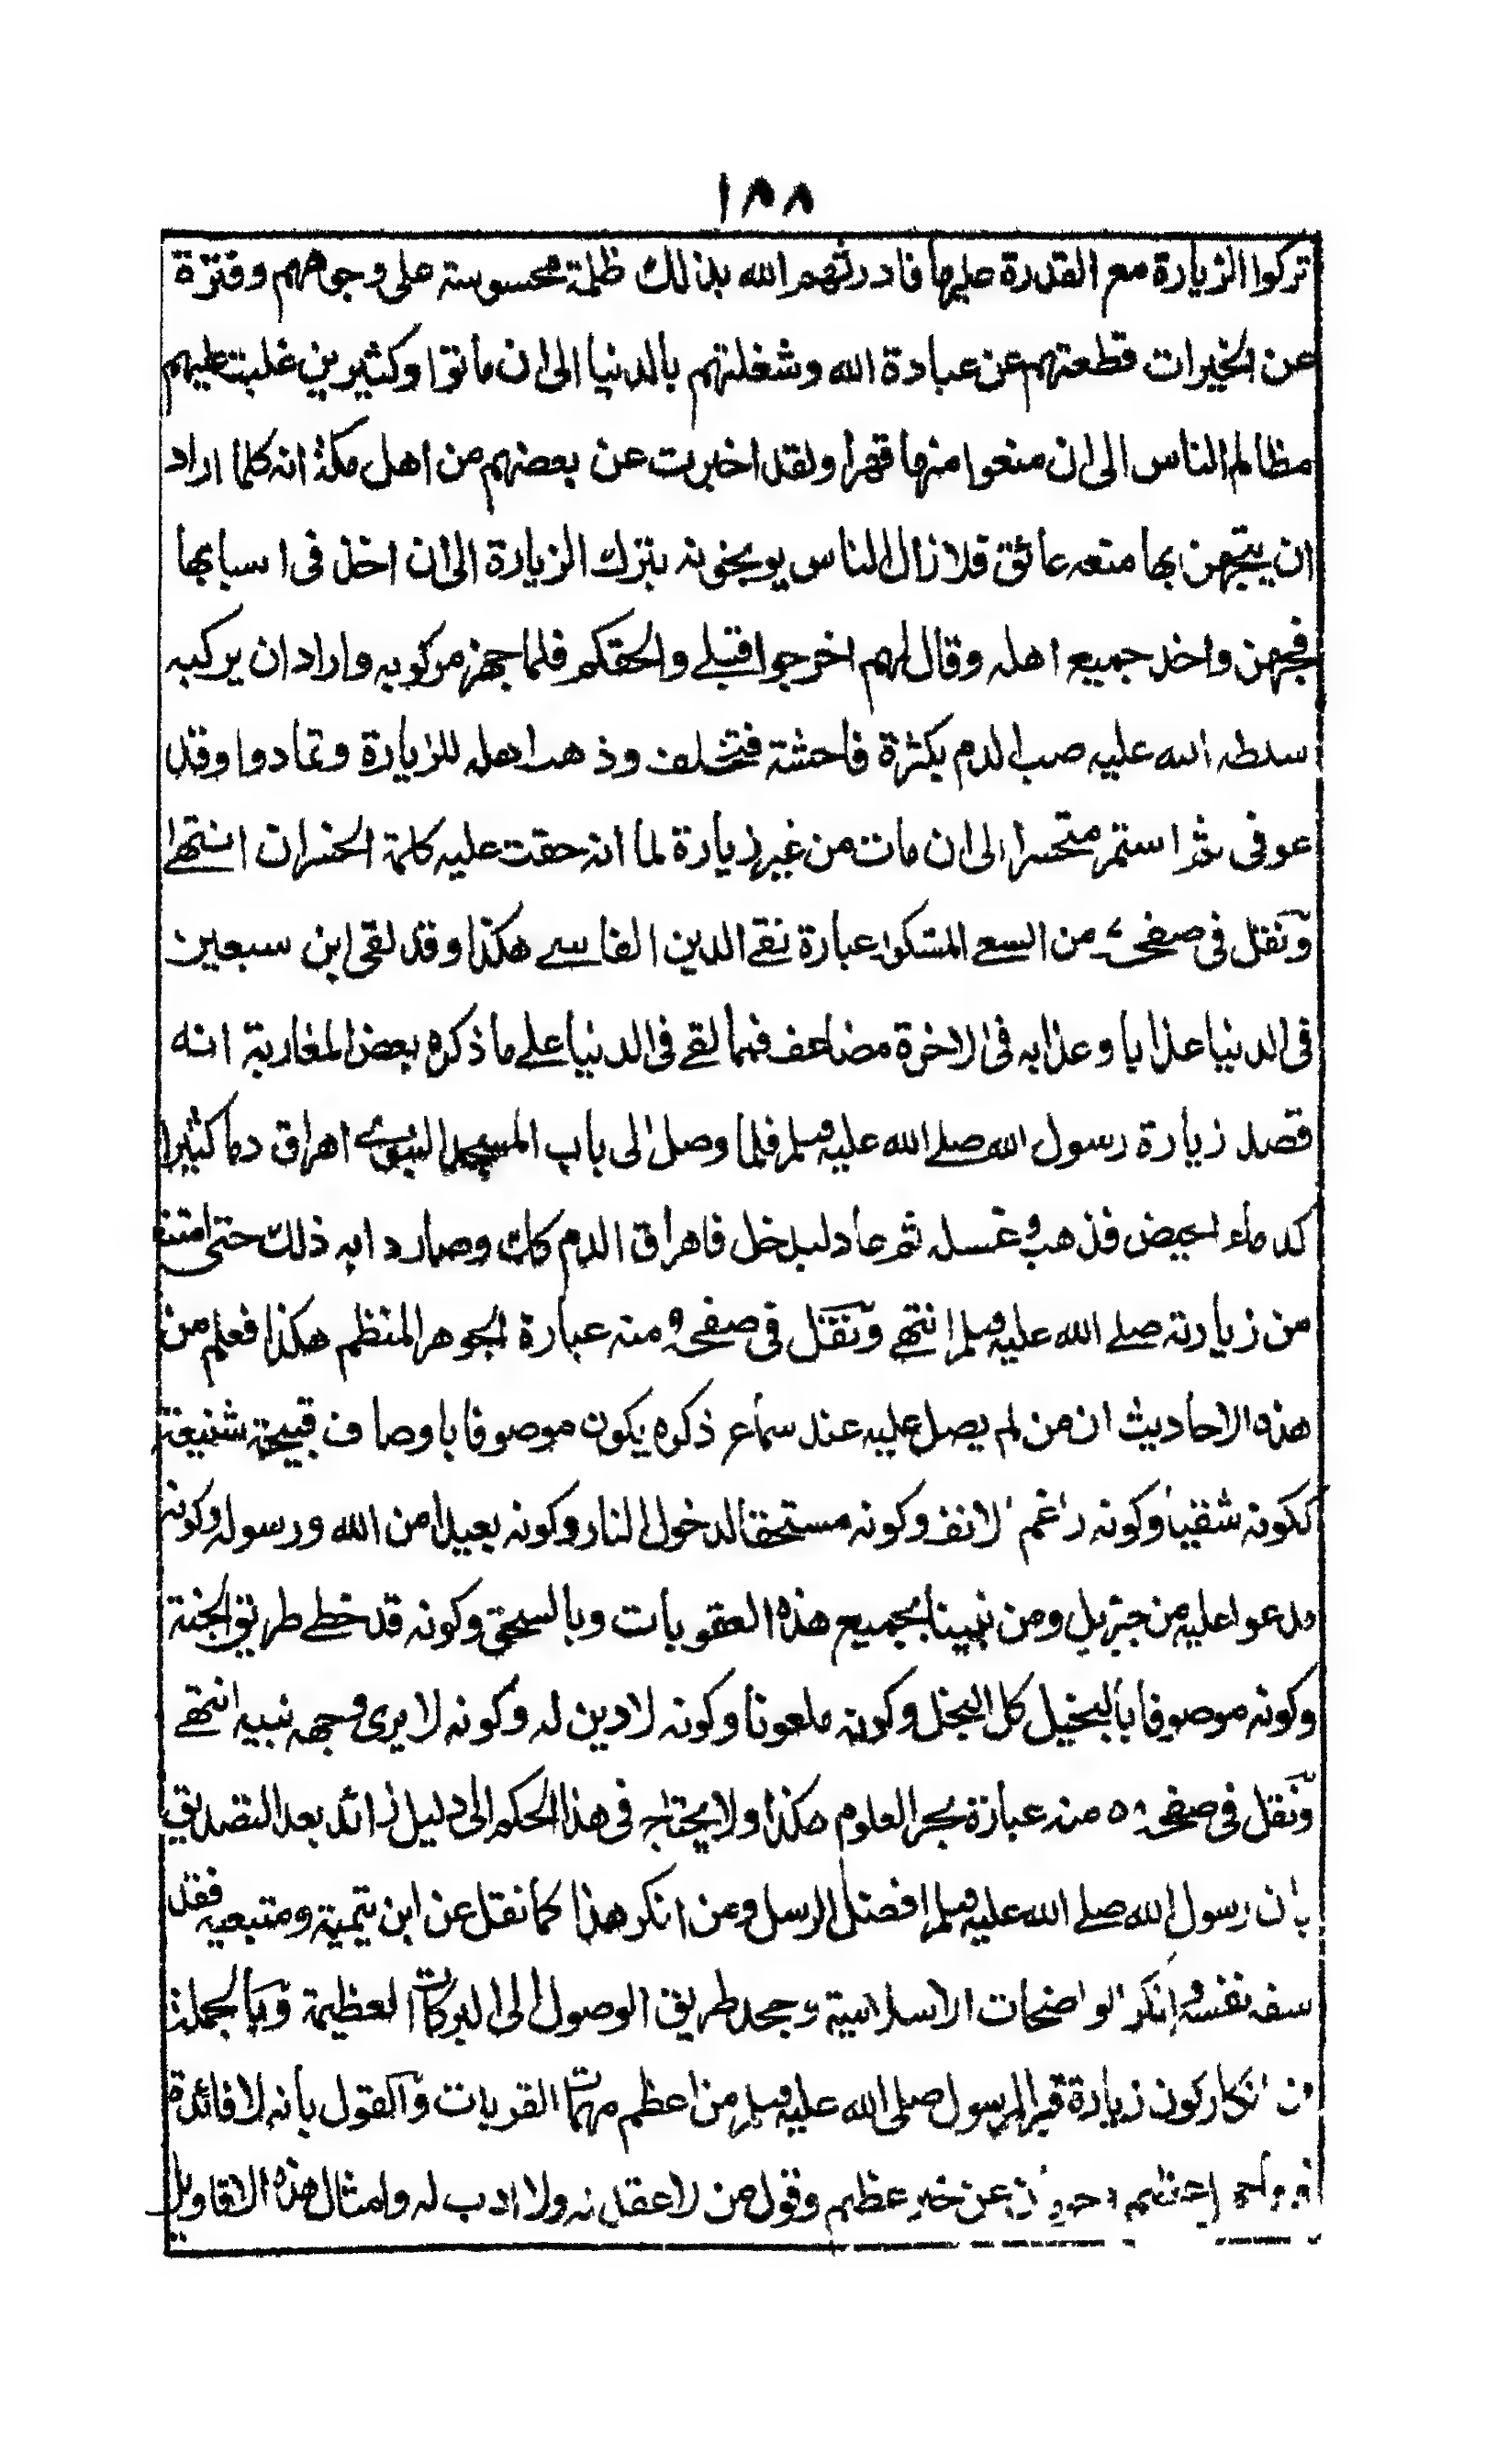 ١٨٨
تركوا الزيارة مع القدرة عليها فاورثهم الله بذلك ظلمة محسوسة على وجوههم وفترة
عن الخيرات قطعتهم عن عبادة الله وشغلتهم بالدنيا الى ان ماتوا وكثيرين غلبت عليهم
مظالم الناس الى ان منعوا منها قهرا ولقد اخبرت عن بعضهم من اهل مكة انه كلما اراد
ان يتجهز بها منعه عائق فلا زال الناس يوبخونه بترك الزيارة الى ان اخذ فى اسبابها
فجهز واخذ جميع اهله وقال لهم اخرجوا قبلے والحقكم فلما جهز مركوبه واراد ان يركبه
سلطه الله عليه صب الدم بكثرة فاحشة فتخلف وذهب اهله للزيارة وتمادوا وقد
عوفى ثم استمر متحسرا الى ان مات من غير زيارة لما انه حقت عليه كلمة الخسران انتهے
ونقل فى صفحہ من السعے المشكور عبارة تقے الدين الفاسے هكذا وقد لقى ابن سبعين
فى الدنيا عذابا وعذابه فى الاخرة مضاعف فمما لقے فى الدنيا علے ما ذكره بعض المغاربة انه
قصد زيارة رسول الله صلے الله عليه وسلم فلما وصل الى باب المسجد النبوے اهراق دما كثيرا
كدماء الحيض فذهب وغسله ثم عاد ليدخل فاهراق الدم كذلك وصار دابه ذلك حتى امتنع
من زيارته صلے الله عليه وسلم انتهے ونقل فى صفحہ ٩ منه عبارة الجوهر المنظم هكذا فعلم من
هذه الاحاديث ان من لم يصل عليه عند سماع ذكره يكون موصوفا باوصاف قبيحة شنيعة
ككونه شقيا وكونه راغم الانف وكونه مستحقا لدخول النار وكونه بعيدا من الله ورسوله وكونه
مدعوا عليه من جبريل ومن نبينا بجميع هذه العقوبات وبالسحق وكونه قد خطے طريق الجنة
وكونه موصوفا بالبخيل كل البخل وكونه ملعونا وكونه لا دين له وكونه لا يرى وجه نبيه انتهے
ونقل فى صفحہ ٥١ منه عبارة بحر العلوم هكذا ولا يحتاج فى هذا الحكم الى دليل زائد بعد التصديق
بان رسول الله صلے الله عليه وسلم افضل الرسل ومن انكر هذا كما نقل عن ابن تيمية ومتبعيه فقد
سفه نفسه وانكر الواضحات الاسلامية وجحد طريق الوصول الى البركات العظيمة وبالجملة
من انكار كون زيارة قبر الرسول صلى الله عليه وسلم من اعظم مهمات القربات والقول بانه لا فائدة
عن خير عظيم وقول من لا عقل له ولا ادب له وامثال هذه الاقاويل